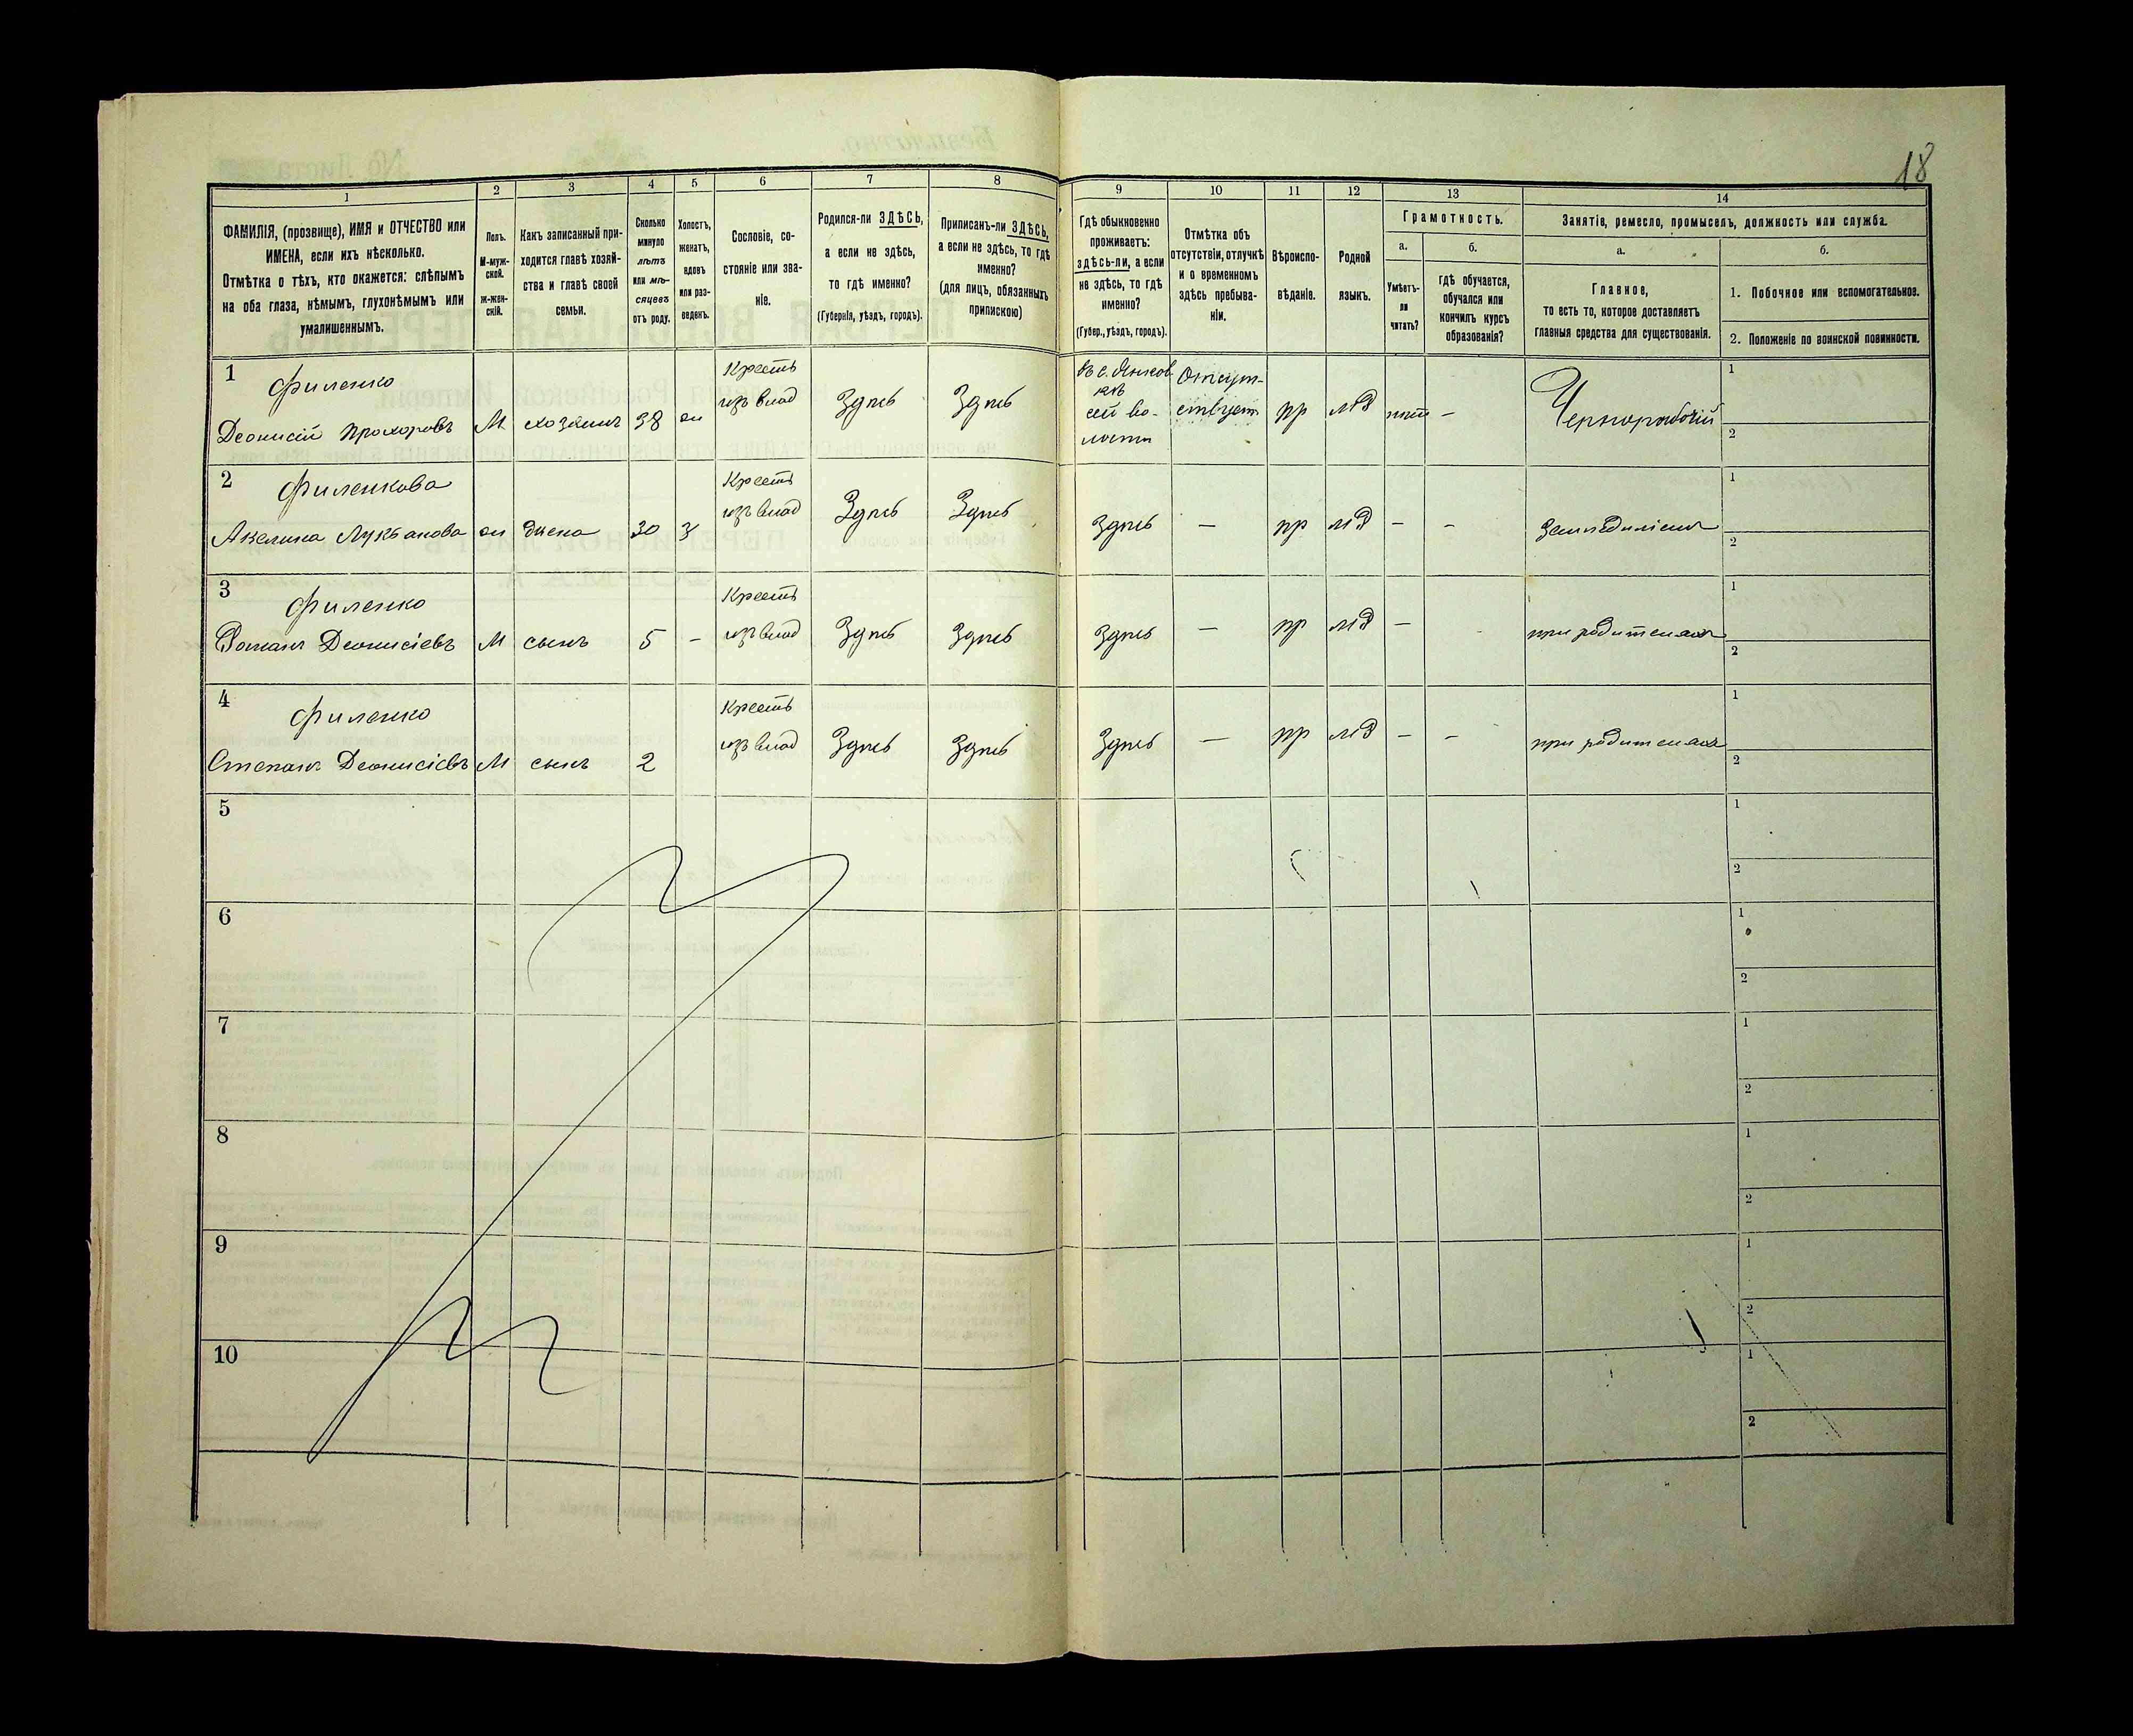 18
1
2
3
4
5
6
7
8
9
10
11
12
13
14
ФАМИЛІЯ, (прозвище), ИМЯ и ОТЧЕСТВО или
ИМЕНА, если ихъ нѣсколько.
Отмѣтка о тѣхъ, кто окажется: слѣпымъ
на оба глаза, нѣмымъ, глухонѣмымъ или
умалишеннымъ.
Полъ.
М-муж-
ской.
ж-жен-
скій.
Какъ записанный при-
ходится главѣ хозяй-
ства и главѣ своей
семьи.
Сколько
минуло
лѣтъ
или мѣ-
сяцевъ
отъ роду.
Холостъ,
женатъ,
вдовъ
или раз-
веденъ.
Сословіе, со-
стояніе или зва-
ніе.
Родился-ли ЗДѢСЬ,
а если не здѣсь,
то гдѣ именно?
(Губернія, уѣздъ, городъ).
Приписанъ-ли ЗДѢСЬ,
а если не здѣсь, то гдѣ
именно?
(для лицъ, обязанныхъ
припискою)
Гдѣ обыкновенно
проживаетъ:
здѣсь-ли, а если
не здѣсь, то гдѣ
именно?
(Губер., уѣздъ, городъ).
Отмѣтка объ
отсутствіи, отлучкѣ
и о временномъ
здѣсь пребыва-
ніи.
Вѣроиспо-
вѣданіе.
Родной
языкъ.
Грамотность.
а.
Умѣетъ-
ли
читать?
б.
гдѣ обучается,
обучался или
кончилъ курсъ
образованія?
Занятіе, ремесло, промыселъ, должность или служба.
а.
Главное,
то есть то, которое доставляетъ
главныя средства для существованія.
б.
1. Побочное или вспомогательное.
2. Положеніе по воинской повинности.
1
Филенко
Деонисій Прохоровъ
М
хозяинъ
38
ж
Крест
изъ влад
Здѣсь
Здѣсь
сей во-
лости
Отсут-
ствует
пр
мд
нѣт
-
Чернорабочій
1
2
2
Филенкова
Акелина Лукьянова
ж
жена
30
з
Крест
изъ влад
Здѣсь
Здѣсь
Здѣсь
-
пр
мд
-
-
земледѣліемъ
1
2
3
Филенко
Роман Деонисіевъ
М
сынъ
5
-
Крест
изъ влад
Здѣсь
Здѣсь
Здѣсь
-
пр
мд
-
при родителях
1
2
4
Филенко
Степанъ Деонисіевъ
М
сынъ
2
Крест
изъ влад
Здѣсь
Здѣсь
Здѣсь
-
пр
мд
-
-
при родителях
1
2
5
1
2
6
1
2
7
1
2
8
1
2
9
1
2
10
1
2